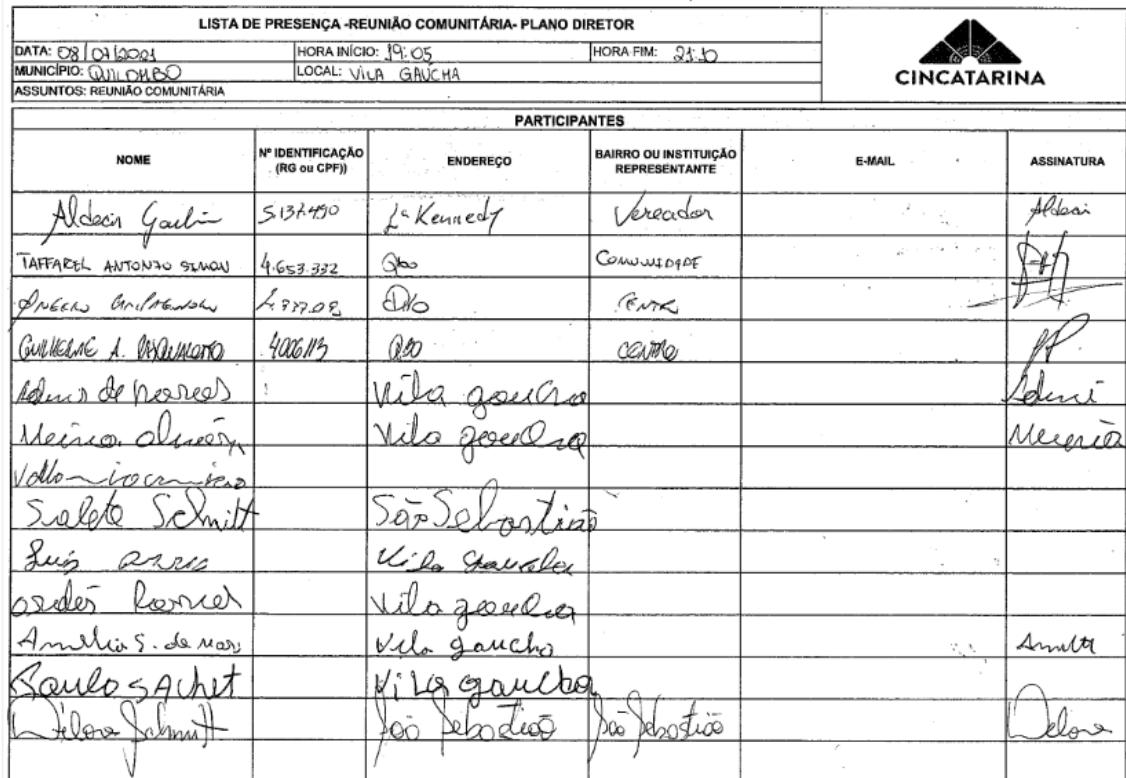 LISTA DE PRESENÇA -REUNIÃO COMUNITÁRIA- PLANO DIRETOR
DATA: 08/07/2021 HORA INÍCIO: 19:05 HORA FIM: 21:10
MUNICÍPIO: QUILOMBO LOCAL: VILA GAÚCHA
ASSUNTOS: REUNIÃO COMUNITÁRIA
CINCATARINA
PARTICIPANTES
NOME Nº IDENTIFICAÇÃO (RG ou CPF)) ENDEREÇO BAIRRO OU INSTITUIÇÃO REPRESENTANTE E-MAIL ASSINATURA
Aldecir 5.137.490 Lª Kennedy Vereador Aldecir
TAFFAREL ANTONIO SIMON 4.653.332 Qbo COMUNIDADE
Qbo CENTRO
GUILHERME A. PASQUALOTTO 4006113 QBO CENTRO
de Vila gaucha
Vila gaucha
Salete Schmitt São Sebastião
Luis Vila gaucha
Vila gaucha
Amelia S. de Vila gaucho Amelia
Paulo SAchet Vila gaucha
Delone Schmitt São Sebastião São Sebastião Delone